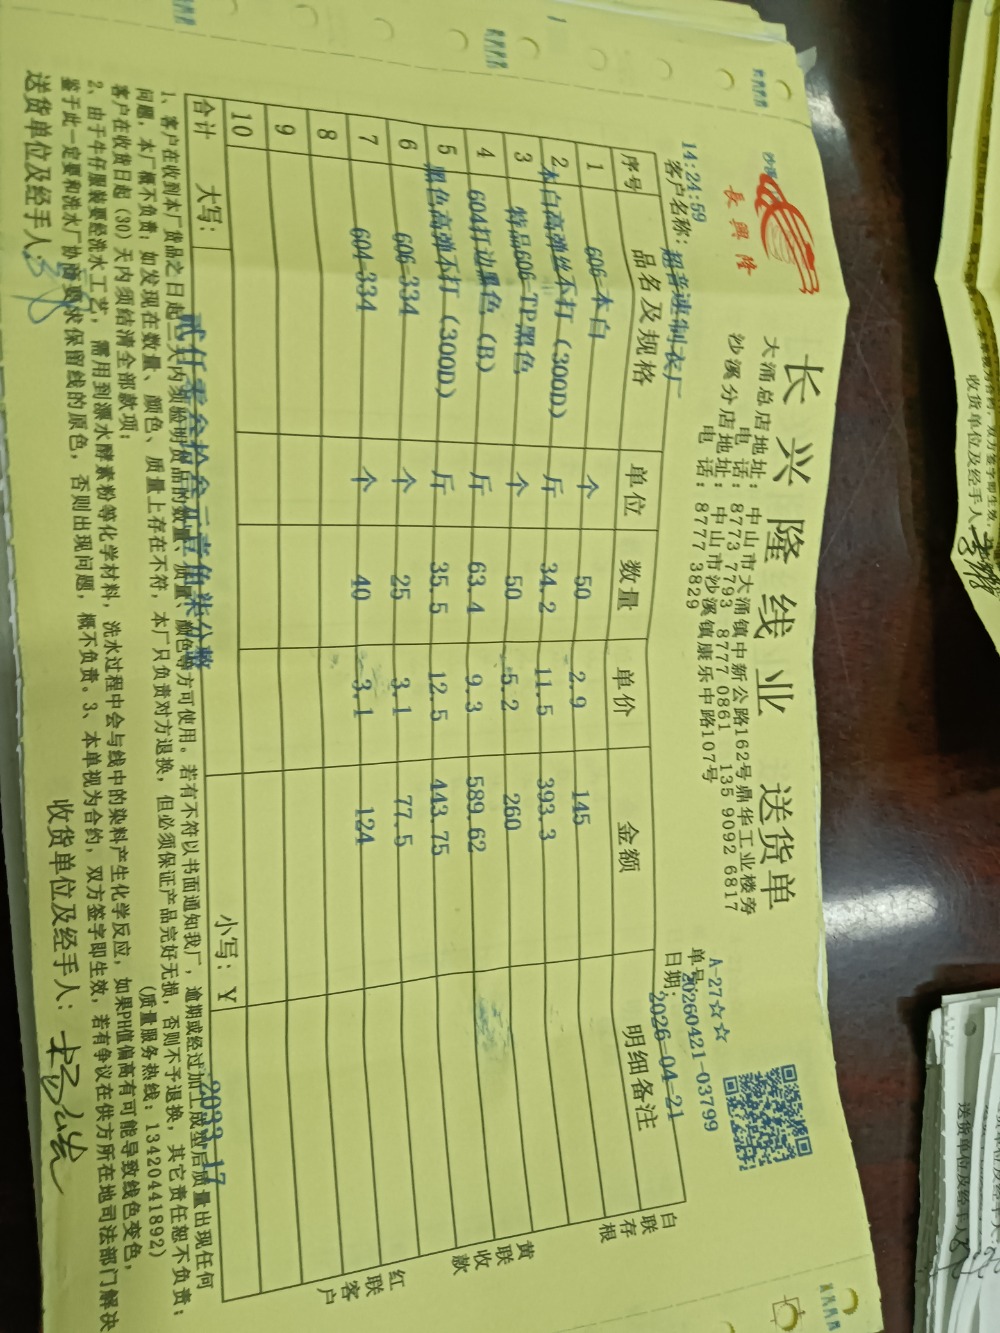 長興隆
长兴隆线业 送货单
大涌总店地址：中山市大涌镇中新公路162号鼎华工业楼旁
电话：8773 7793 8777 0861 135 9092 6817
沙溪分店地址：中山市沙溪镇康乐中路107号
电话：8777 3829
A-27☆☆
单号：20260421-03799
日期：2026-04-21
14:24:59
客户名称：超普进制衣厂
序号 品名及规格 单位 数量 单价 金额 明细备注
1 606-本白 个 50 2.9 145
2 本白高弹丝不打（300D） 斤 34.2 11.5 393.3
3 特品606-TP黑色 个 50 5.2 260
4 604打边黑色（B） 斤 63.4 9.3 589.62
5 黑色高弹不打（300D） 斤 35.5 12.5 443.75
6 606-334 个 25 3.1 77.5
7 604-334 个 40 3.1 124
8
9
10
合计 大写：贰仟零叁拾叁元壹角柒分整 小写：¥ 2033.17
白联存根
黄联收款
红联客户
1、客户在收到本厂货品之日起三天内须验明货品的数量、质量、颜色等方可使用。若有不符以书面通知我厂，逾期或经过加工成型后质量出现任何
问题，本厂概不负责；如发现在数量、颜色、质量上存在不符，本厂只负责对方退换，但必须保证产品完好无损，否则不予退换，其它责任恕不负责；
客户在收货日起（30）天内须结清全部款项； （质量服务热线：13420441892）
2、由于牛仔服装要经洗水工艺，需用到漂水酵素粉等化学材料，洗水过程中会与线中的染料产生化学反应，如果PH值偏高有可能导致线色变色，
鉴于此一定要和洗水厂协商要求保留线的原色，否则出现问题，概不负责。3、本单视为合约，双方签字即生效，若有争议在供方所在地司法部门解决
送货单位及经手人： 收货单位及经手人：
收货单位及经手人
送货单位及经手人